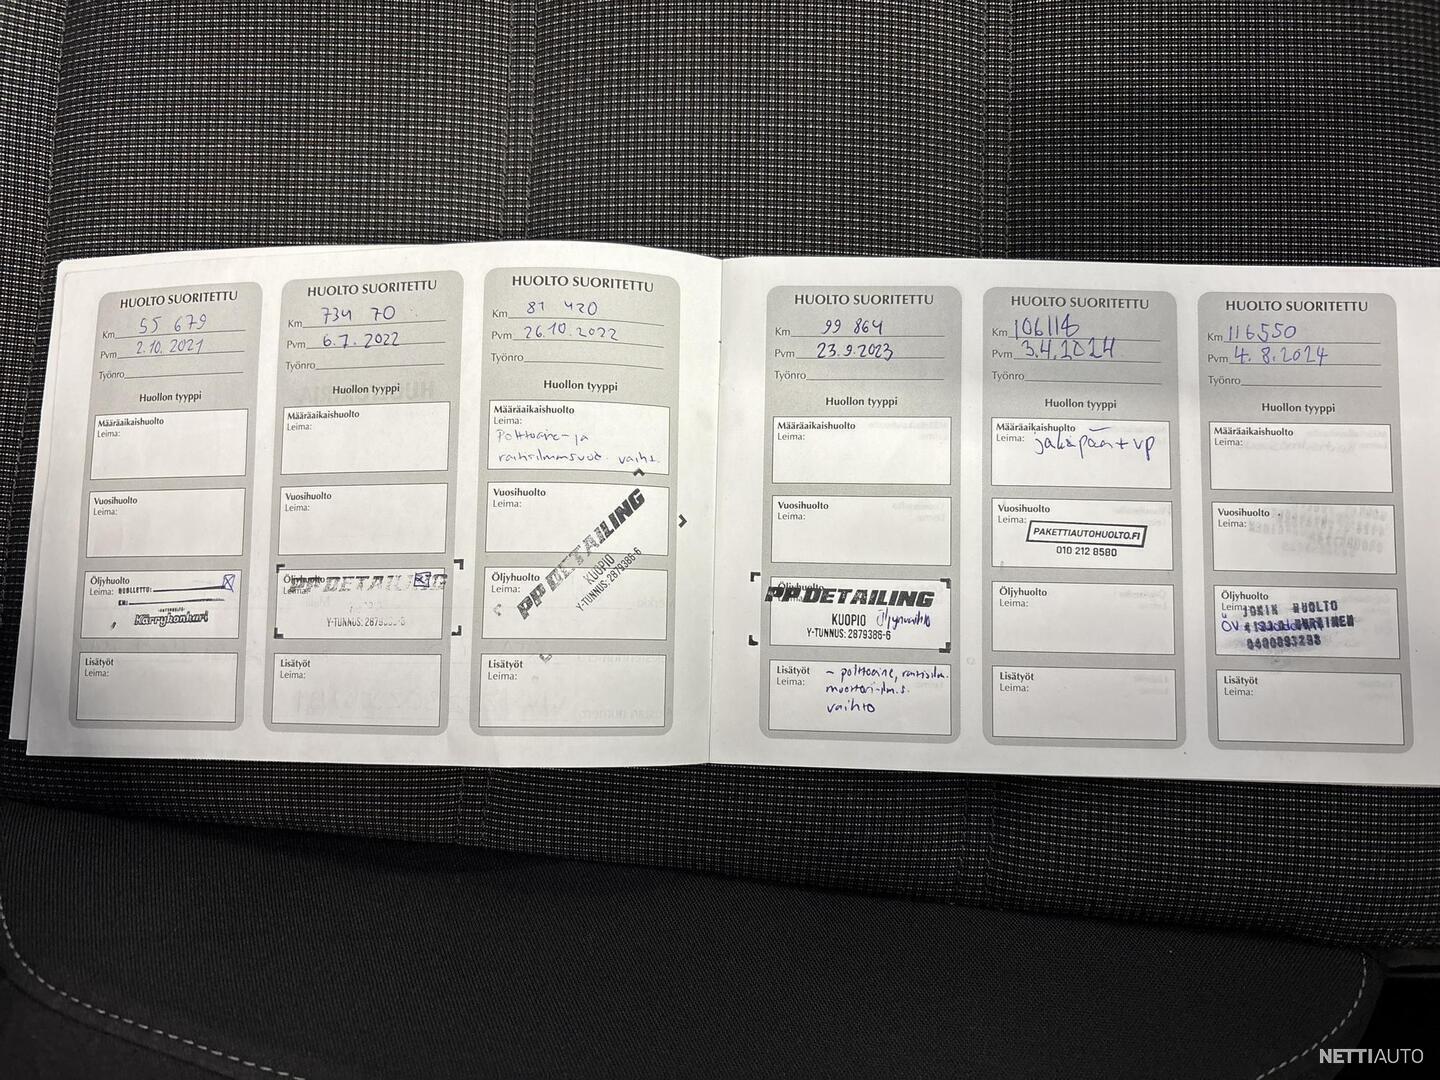 HUOLTO SUORITETTU
Km 55 679
Pvm 2.10.2021
Työnro
Huollon tyyppi
Määräaikaishuolto
Leima:
Vuosihuolto
Leima:
Öljyhuolto
Leima: HUOLLETTU:
KM:
Kärryhonkari
Lisätyöt
Leima:
HUOLTO SUORITETTU
Km 734 70
Pvm 6.7.2022
Työnro
Huollon tyyppi
Määräaikaishuolto
Leima:
Vuosihuolto
Leima:
Öljyhuolto
Leima:
PP DETAILING
Y-TUNNUS: 2879386-6
Lisätyöt
Leima:
HUOLTO SUORITETTU
Km 81 420
Pvm 26.10.2022
Työnro
Huollon tyyppi
Määräaikaishuolto
Leima:
Polttoaine- ja
raitisilmansuod. vaiht.
Vuosihuolto
Leima:
PP DETAILING
KUOPIO
Y-TUNNUS: 2879386-6
Öljyhuolto
Leima:
Lisätyöt
Leima:
HUOLTO SUORITETTU
Km 99 864
Pvm 23.9.2023
Työnro
Huollon tyyppi
Määräaikaishuolto
Leima:
Vuosihuolto
Leima:
Öljyhuolto
PP DETAILING
KUOPIO Öljynvaihto
Y-TUNNUS: 2879386-6
Lisätyöt
Leima: - polttoaine, raitisilm.
moottori-ilm.s.
vaihto
HUOLTO SUORITETTU
Km 106116
Pvm 3.4.2024
Työnro
Huollon tyyppi
Määräaikaishuolto
Leima: jakopää + vp
Vuosihuolto
Leima:
PAKETTIAUTOHUOLTO.FI
010 212 8580
Öljyhuolto
Leima:
Lisätyöt
Leima:
HUOLTO SUORITETTU
Km 116550
Pvm 4.8.2024
Työnro
Huollon tyyppi
Määräaikaishuolto
Leima:
Vuosihuolto
Leima:
Öljyhuolto
Leima: HUOLTO
ÖV
Lisätyöt
Leima:
NETTIAUTO